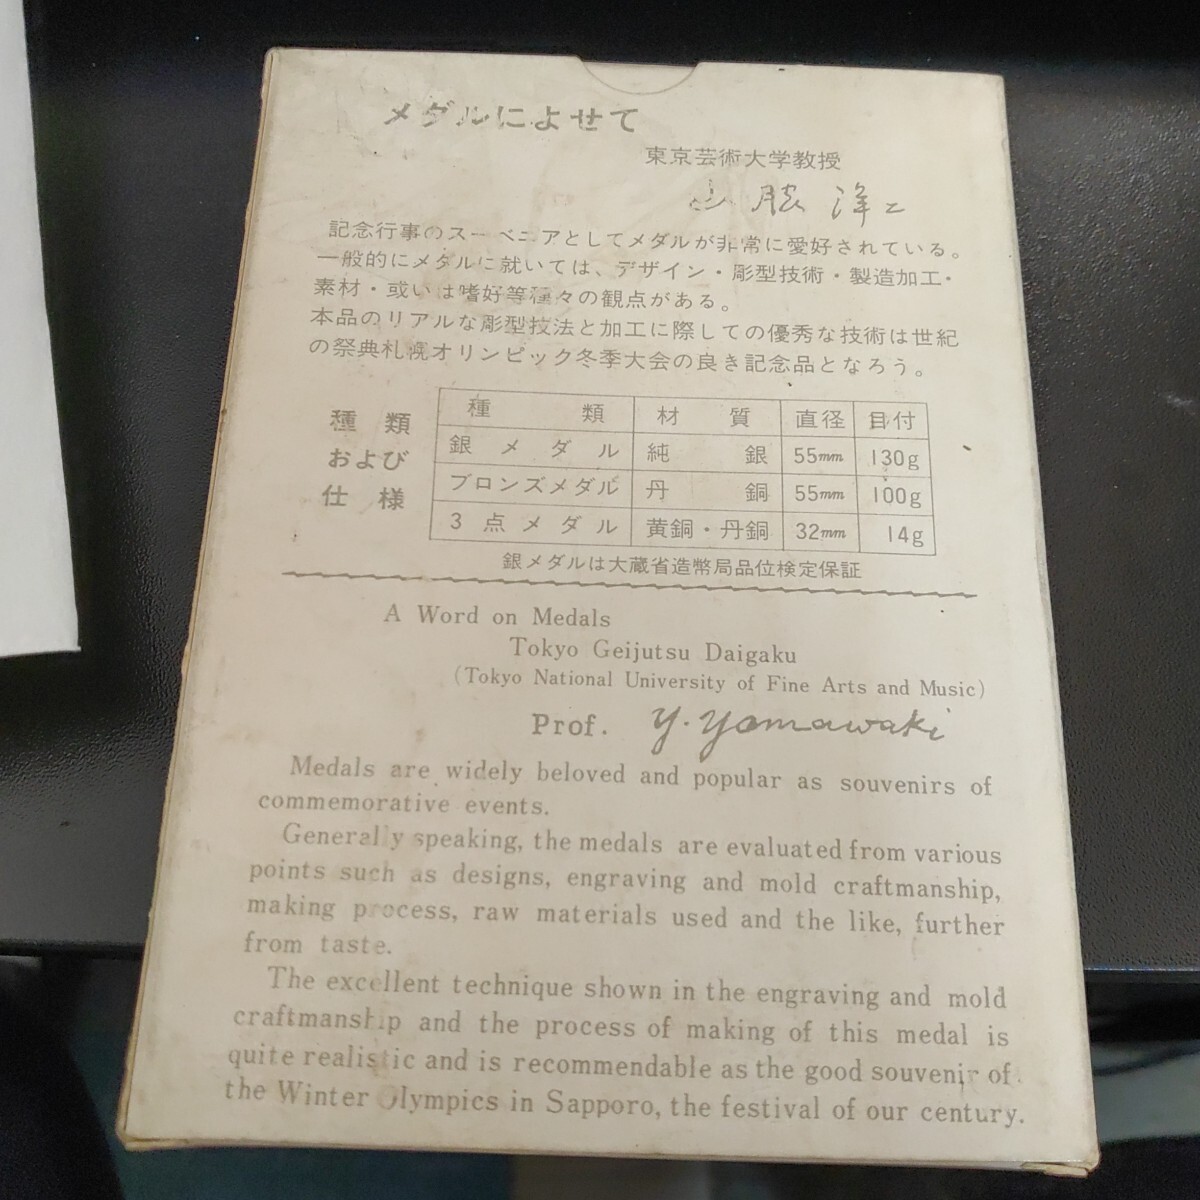 メダルによせて
東京芸術大学教授
山脇洋二
記念行事のスーベニアとしてメダルが非常に愛好されている。
一般的にメダルに就いては、デザイン・彫型技術・製造加工・
素材・或いは嗜好等種々の観点がある。
本品のリアルな彫型技法と加工に際しての優秀な技術は世紀
の祭典札幌オリンピック冬季大会の良き記念品となろう。
種類
および
仕様
種類 材質 直径 目付
銀メダル 純銀 55mm 130g
ブロンズメダル 丹銅 55mm 100g
3点メダル 黄銅・丹銅 32mm 14g
銀メダルは大蔵省造幣局品位検定保証
A Word on Medals
Tokyo Geijutsu Daigaku
(Tokyo National University of Fine Arts and Music)
Prof. Y. Yamawaki
Medals are widely beloved and popular as souvenirs of
commemorative events.
Generally speaking, the medals are evaluated from various
points such as designs, engraving and mold craftmanship,
making process, raw materials used and the like, further
from taste.
The excellent technique shown in the engraving and mold
craftmanship and the process of making of this medal is
quite realistic and is recommendable as the good souvenir of
the Winter Olympics in Sapporo, the festival of our century.